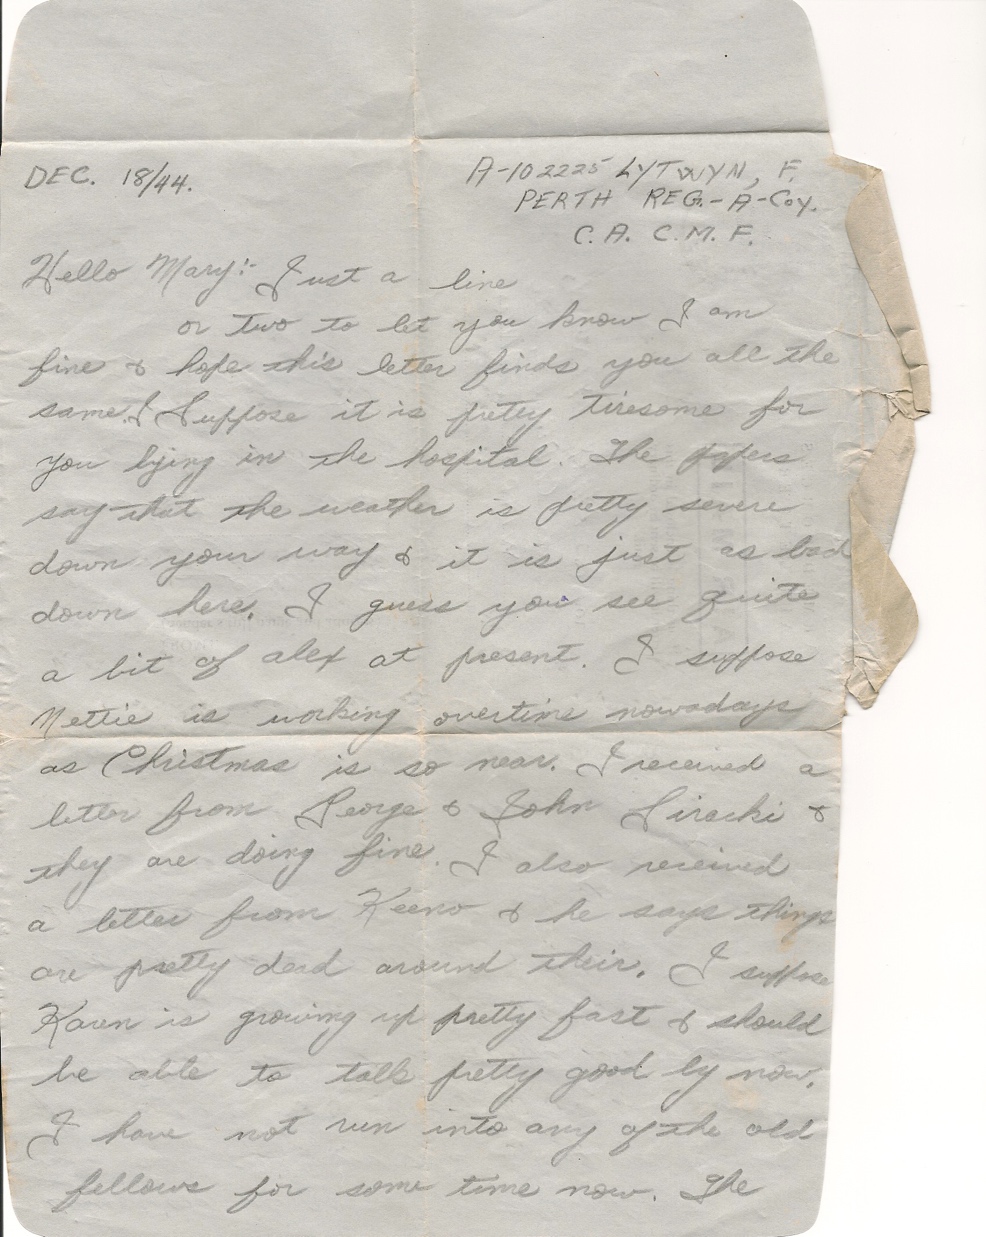 DEC. 18/44.
A-102225 LYTWYN, F.
PERTH REG.-A-Coy.
C. A. C. M. F.
Hello Mary:- Just a line
or two to let you know I am
fine & hope this letter finds you all the
same. I Suppose it is pretty tiresome for
you lying in the hospital. The papers
say that the weather is pretty severe
down your way & it is just as bad
down here. I guess you see quite
a bit of alex at present. I suppose
Nettie is working overtime nowadays
as Christmas is so near. I received a
letter from George & John Siracki &
they are doing fine. I also received
a letter from Keeno & he says things
are pretty dead around their. I suppose
Karen is growing up pretty fast & should
be able to talk pretty good by now.
I have not run into any of the old
fellows for some time now. The